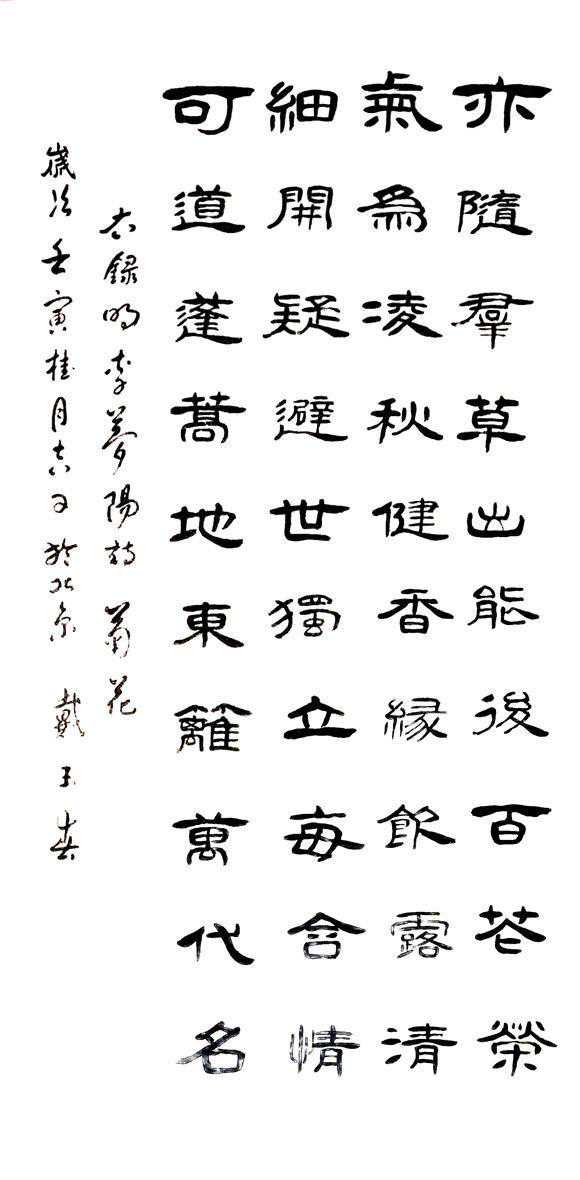 亦隨羣草出能後百花榮
氣為凌秋健香緣飲露清
細開疑避世獨立每含情
可道蓬蒿地東籬萬代名
右錄明李夢陽詩菊花
歲次壬寅桂月吉日於北京 戴玉春